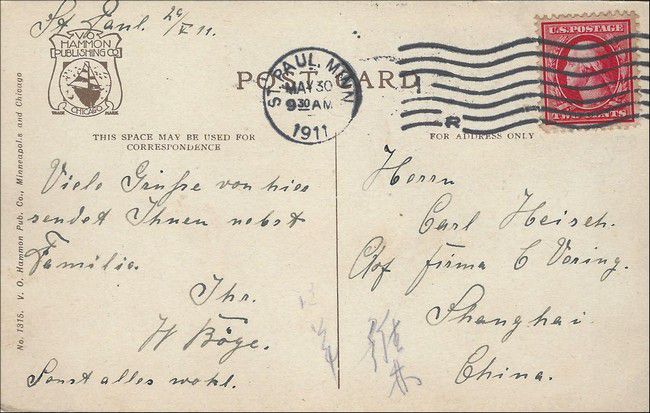 St. Paul. 29/V 11.
V.O.
HAMMON
PUBLISHING CO
CHICAGO
TRADE MARK
POST CARD
ST. PAUL, MINN.
MAY 30
9 30 AM
1911
U.S. POSTAGE
TWO CENTS
THIS SPACE MAY BE USED FOR
CORRESPONDENCE
FOR ADDRESS ONLY
No. 1315. V. O. Hammon Pub. Co., Minneapolis and Chicago
Viele Grüße von hier
sendet Ihnen nebst
Familie.
Ihr.
W Böge.
Sonst alles wohl.
Herrn
Carl Heisch.
C/of firma C Voring.
Shanghai
China.